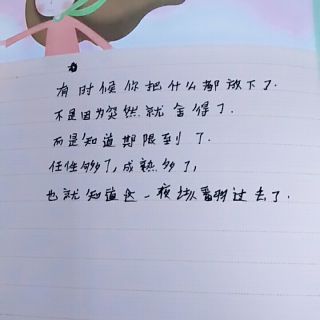 有时候你把什么都放下了.
不是因为突然就舍得了.
而是知道期限到了.
任性够了,成熟够了,
也就知道这一页该翻过去了.